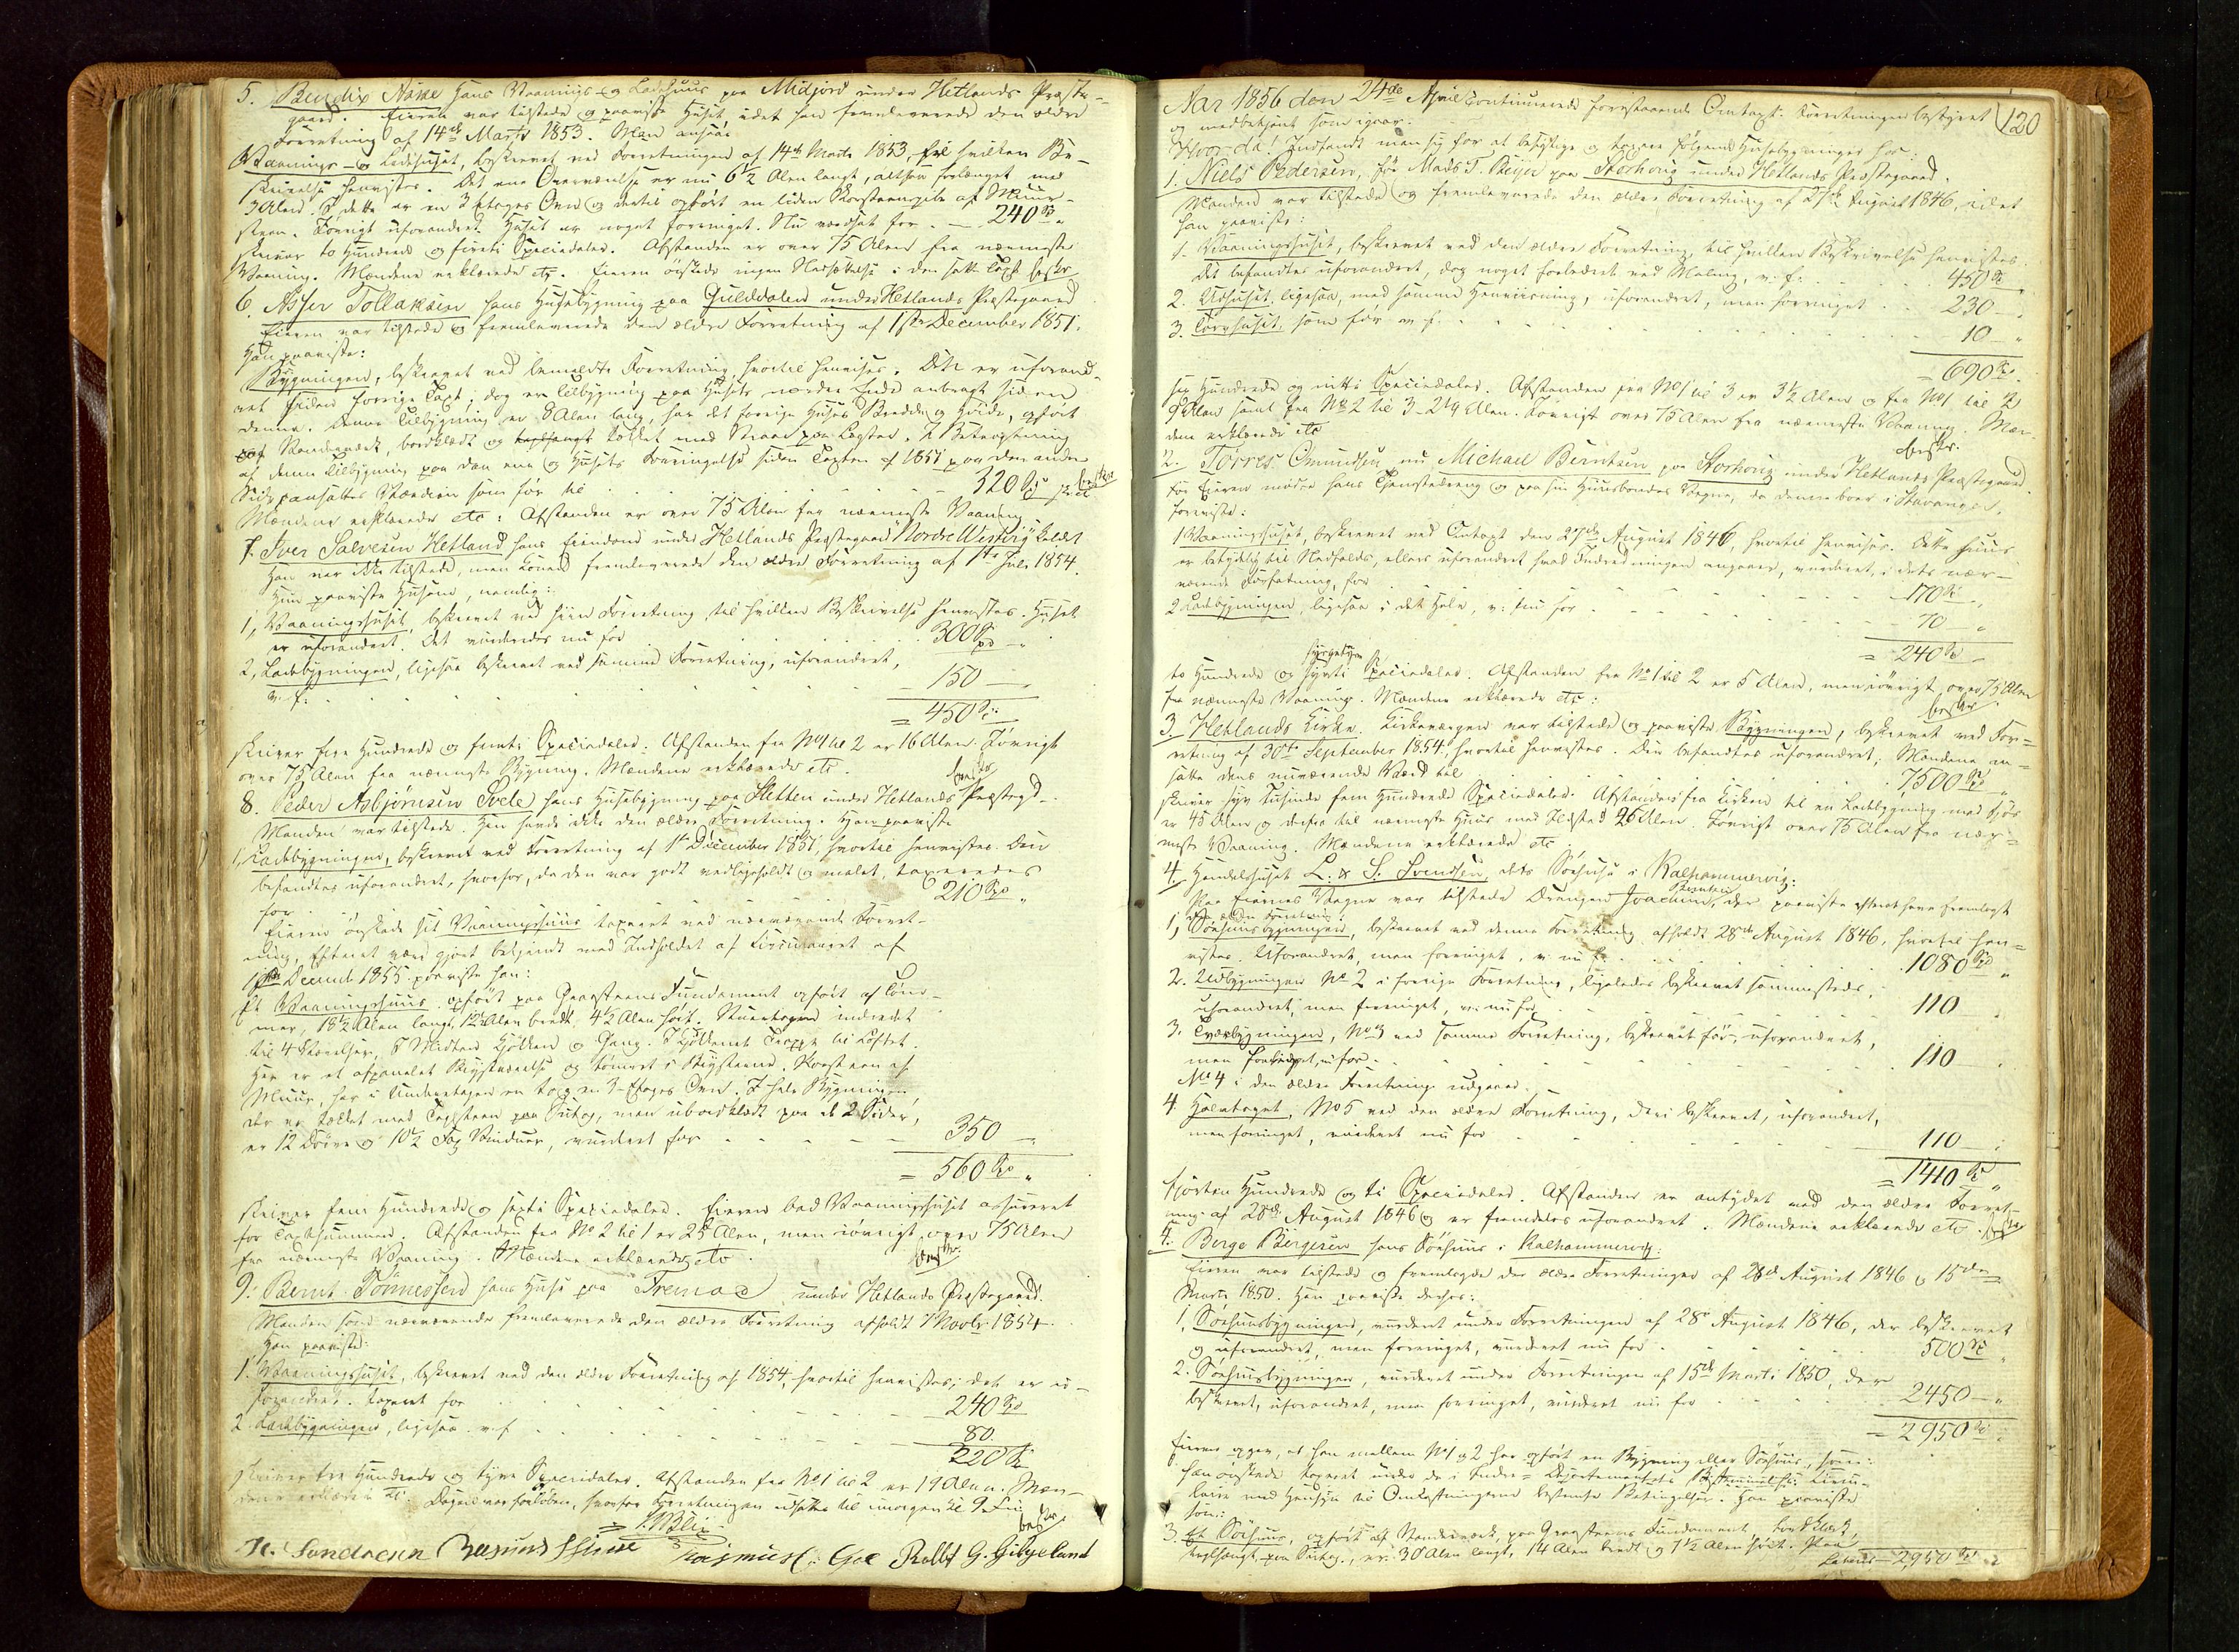 5. Bendix Aase hans Vaanings- og Ladehuus paa Midjord under Hetlands Præste-
gaard. Eieren var tilstede og paaviste Huset, idet han fremleverede den ældre
Forretning af 14de Marts 1853. Man ansaae
Vaanings- og Ladehuset, beskrevet ved Forretningen af 14de Marts 1853, til hvilken Be-
skrivelse henvises. Det ene Overværelse er nu 6½ Alen langt, altsaa forlænget med
3 Alen. I dette er en 3 Etages Ovn og dertil opført en liden Skorsteenspibe af Muur-
steen. Iøvrigt uforandret. Huset er noget forringet. Nu værdsat for . — 240 Spd „
skriver to Hundrede og firti Speciedaler. Afstanden er over 75 Alen fra nærmeste
Vaaning. Mændene erklærede etc. Eieren ønskede ingen Nedsættelse i den satte Taxt. beskr.
6. Asser Tollaksen hans Huusebygning paa Gulddalen under Hetlands Præstegaard
Eieren var tilstede og fremleverede den ældre Forretning af 1ste December 1851.
Han paaviste:
Bygningen, beskrevet ved bemeldte Forretning, hvortil henvises. Den er uforand-
ret siden forrige Taxt; dog en Tilbygning paa Husets nordre Ende anbragt siden
denne. Denne Tilbygning er 8 Alen lang, har det forrige Huses Bredde og Høide, opført
af Bindingsværk, bordklædt og tækket med Straae paa Lægter. I Betragtning
af denne Tilbygning paa den ene og Husets Forringelse siden Taxten af 1851 paa den anden
Side ansattes Værdien som før til . . . . 320 Spd beskr
Mændene erklærede etc: Afstanden er over 75 Alen fra nærmeste Vaaning
7. Iver Salvesen Hetland hans Eiendom under Hetlands Præstegaard Nordre Westvig kaldet
Han var ikke tilstede, men Konen fremleverede den ældre Forretning af 1ste Juli 1854.
Hun paaviste Husene, nemlig:
1, Vaaningshuset, beskrevet ved hiin Forretning, til hvilken Beskrivelse henvises. Huset
er uforandret. Det vurderedes nu for . . . . 300 Spd „
2, Ladebygningen, ligesaa beskrevet ved samme Forretning, uforandret,
v. f. . . . . — 150 — „
= 450 Spd
skriver fire Hundrede og femti Speciedaler. Afstanden fra No 1 til 2 er 16 Alen. Iøvrigt
over 75 Alen fra nærmeste Bygning. Mændene erklærede etc. beskr
8. Peder Asbjørnsen Svele hans Huusebygning paa Sletten under Hetlands Præstegd.
Manden var tilstede. Han havde ikke den ældre Forretning. Han paaviste
1, Ladebygningen, beskrevet ved Forretning af 1ste December 1851, hvortil henvises. Den
befandtes uforandret, hvorfor, da den var godt vedligeholdt og malet, taxeredes
for . . . . 210 Spd „
Eieren ønskede sit Vaaningshuus taxeret ved nærværende Forret-
ning. Efterat være gjort bekjendt med Indholdet af Circulairet af
1ste Decemb. 1855 paaviste han:
Et Vaaningshuus opført paa Graasteens Fundament opført af Tøm-
mer, 18½ Alen langt, 12½ Alen bredt, 4½ Alen høit. Stueetagen indredet
til 4 Værelser, i Midten Kjøkken og Gang. I Kjøkkenet Trappe til Loftet.
Her er et afpanelet Qvistværelse og tømret i Røstene. Skorsteen af
Muur, har i Underetagen en to og en 3-Etages Ovn. I hele Bygningen
der er tækket med Tagsteen paa Sutag, men ubordklædt paa de 2 Sider,
er 12 Døre og 10½ Fag Vinduer, vurderet for . . . . 350 — „
= 560 Spd „
skriver fem Hundrede og sexti Speciedaler. Eieren bad Vaaningshuset assureret
for Taxtsummen. Afstanden fra No 2 til 1 er 25 Alen, men iøvrigt over 75 Alen
fra nærmeste Vaaning. Mændene erklærede etc. beskr.
9. Bernt Tønnessen hans Huse paa "Tremoe" under Hetlands Præstegaard.
Manden som nærværende fremleverede den ældre Forretning afholdt 7 Novbr 1854.
Han paaviste:
1. Vaaningshuset, beskrevet ved den ældre Forretning af 1854, hvortil henvises; det er u-
forandret. taxeret for . . . . 240 Spd
2. Ladebygningen, ligesaa v. f. . . . . 80.
320 Spd
skriver tre Hundrede og tyve Speciedaler. Afstanden fra No 1 til 2 er 19 Alen. Mæn-
dene erklærede etc. Dagen var forløben, hvorfor Forretningen udsattes til imorgen Kl 9. beskr.
Blix
N. Sandersen Rasmus C. Goe Rollf G. Gibgeland
120
Aar 1856 den 24de April continueredes foranstaaende Omtaxt. Forretningen bestyret
og medbetjent som igaar.
Hvor da: Indfandt man sig for at besigtige og taxere følgende Huusebygninger hos:
1. Niels Pedersen, før Mads T. Beijer paa Storhoug under Hetlands Præstegaard.
Manden var tilstede og fremleverede den ældre Forretning af 27de August 1846, idet
han paaviste:
1. Vaaningshuset, beskrevet ved den ældre Forretning, til hvilken Beskrivelse henvises.
Det befandtes uforandret, dog noget forbedret ved Maling, v. f. . . 450 Spd
2. Udhuset, ligesaa, med samme Henviisning, uforandret, men forringet . 230 — „
3. Tørvhuset, som før v. f. . . . . 10 — „
= 690 Spd.
sex Hundrede og nitti Speciedaler. Afstanden fra No 1 til 3 er 3½ Alen og fra No 1 til 2
9 Alen samt fra No 2 til 3 - 2¼ Alen. Iøvrigt over 75 Alen fra nærmeste Vaaning. Mæn-
dene erklærede etc beskr.
2. Tørres Omundsen nu Michael Berntsen paa Storhoug under Hetlands Præstegaard.
For Eieren mødte hans Tjenestedreng og paa sin Huusbondes Vegne, da denne boer i Stavanger,
foreviste:
1 Vaaningshuset, beskrevet ved Omtaxt den 27de August 1846, hvortil henvises. Dette Huus
er betydelig til Nedfalds, ellers uforandret hvad Indredningen angaaer, vurderet, i dets nær-
værende Forfatning, for . . . . 170 Spd „
2 Ladebygningen, ligesaa i det Hele, v: nu for . . . . 70 „
= 240 Spd „
to Hundrede og fyrti Speciedaler. Afstanden fra No 1 til 2 er 5 Alen, men iøvrigt over 75 Alen
fra nærmeste Vaaning. Mændene erklærede etc: beskr
3. Hetlands Kirke. Kirkeværgen var tilstede og paaviste Bygningen, beskrevet ved For-
retning af 30te September 1854, hvortil henvistes. Den befandtes uforandret; Mændene an-
satte dens nuværende Værd til . . . . 7500 Spd „
skriver syv Tusinde fem Hundrede Speciedaler. Afstanden fra Kirken til en Ladebygning med Fjøs
er 45 Alen og derfra til nærmeste Huus med Ildsted 26 Alen. Iøvrigt over 75 Alen fra nær-
meste Vaaning. Mændene erklærede etc
4. Handelshuset L. & S. Svendsen, dets Søehuse i Kalhammervig:
Paa Eiernes Vegne var tilstede Drengen Joachim Berntsen, der paaviste efterat have fremlagt
den ældre Forretning:
1, Søehuusbygningen, beskrevet ved denne Forretning afholdt 28de August 1846, hvortil hen-
vises. Uforandret, men forringet, v. nu f. . . . 1080 Spd „
2. Udbygningen No 2 i forrige Forretning, ligeledes beskrevet sammesteds,
uforandret, men forringet, v. nu for . . . . 110 „
3. Tværbygningen, No 3 ved samme Forretning, beskrevet før, uforandret,
men forringet, v. for . . . . 110 „
No 4 i den ældre Forretning udgaaer.
4. Halvtaget, No 5 ved den ældre Forretning, deri beskrevet, uforandret,
men forringet, vurderet nu for . . . . 110 — „
= 1410 Spd „
fjorten Hundrede og ti Speciedaler. Afstanden er antydet ved den ældre Forret-
ning af 28de August 1846 og er fremdeles uforandret. Mændene erklærede etc. beskr
4. Berge Bergesen hans Søehuus i Kalhammervig:
Eieren var tilstede og fremlagde de ældre Forretninger af 28de August 1846 og 15de
Marts 1850. Han paaviste derhos:
1. Søehuusbygningen, vurderet under Forretningen af 28de August 1846, der beskrevet
og uforandret, men forringet, vurderet nu for . . . . 500 Spd „
2. Søehuusbygningen, vurderet under Forretningen af 15de Marts 1850, der
beskrevet, uforandret, men forringet, vurderet nu for . . . . 2450 — „
= 2950 Spd „
Eieren opgav, at han mellem No 1 og 2 har opført en Bygning eller Søehuus, som
han ønskede taxeret under de i Indre-Departementets Circu-
laire med Hensyn til Omkostningerne bestemte Betingelser. Han paaviste
som:
3. Et Søehuus, opført af Bindingsværk, paa Graasteens Fundament, bordklædt,
teglhængt paa Sutag, er 30 Alen langt, 14 Alen bredt og 7½ Alen høit. Paa
Lateris — 2950 Spd „